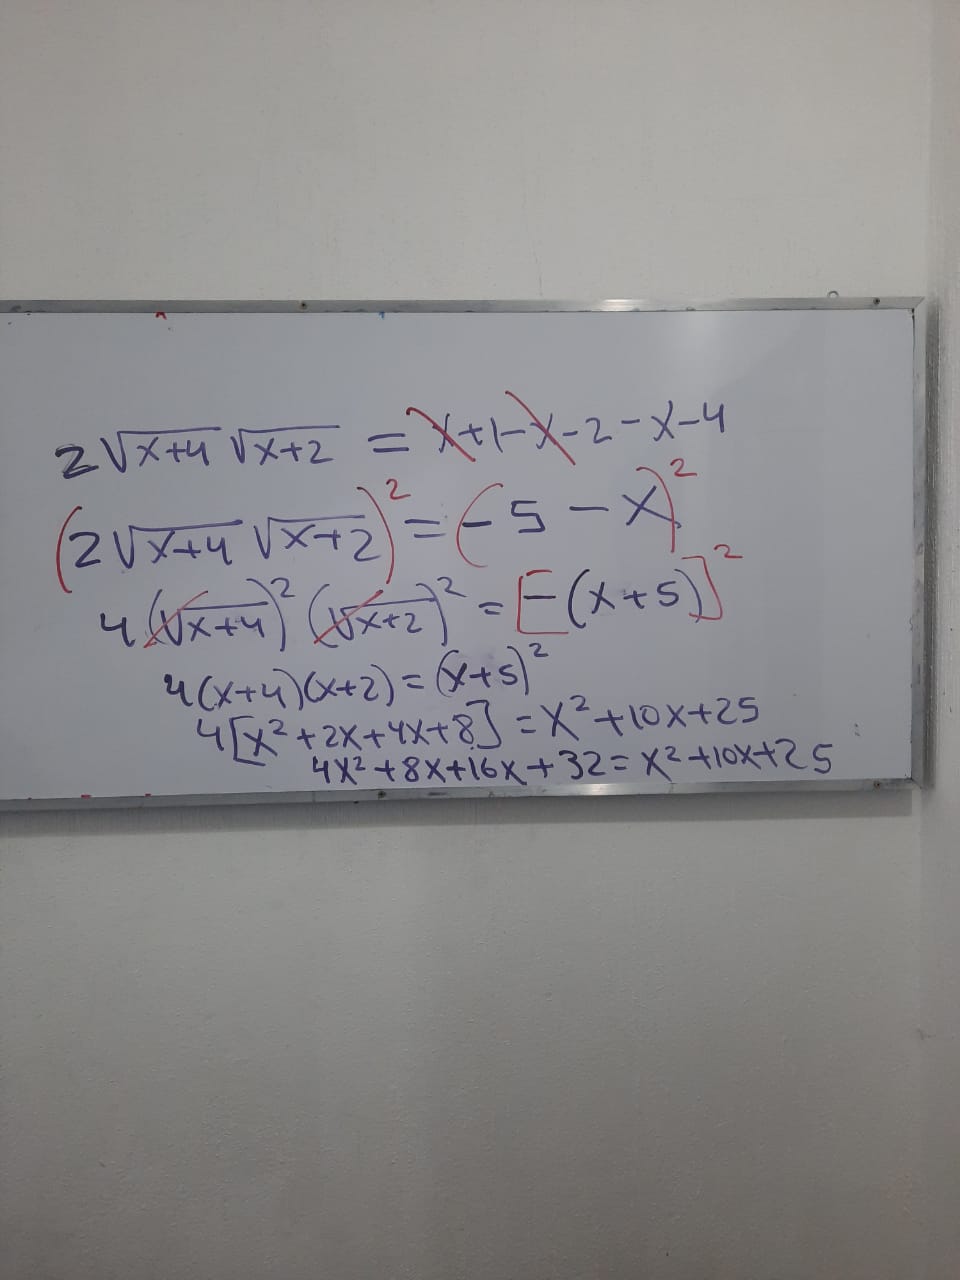 2√x+4 √x+2 = x+1-x-2-x-4
(2√x+4 √x+2)² = (-5-x)²
4(√x+4)² (√x+2)² = [-(x+5)]²
4(x+4)(x+2) = (x+5)²
4[x²+2x+4x+8] = x²+10x+25
4x²+8x+16x+32 = x²+10x+25